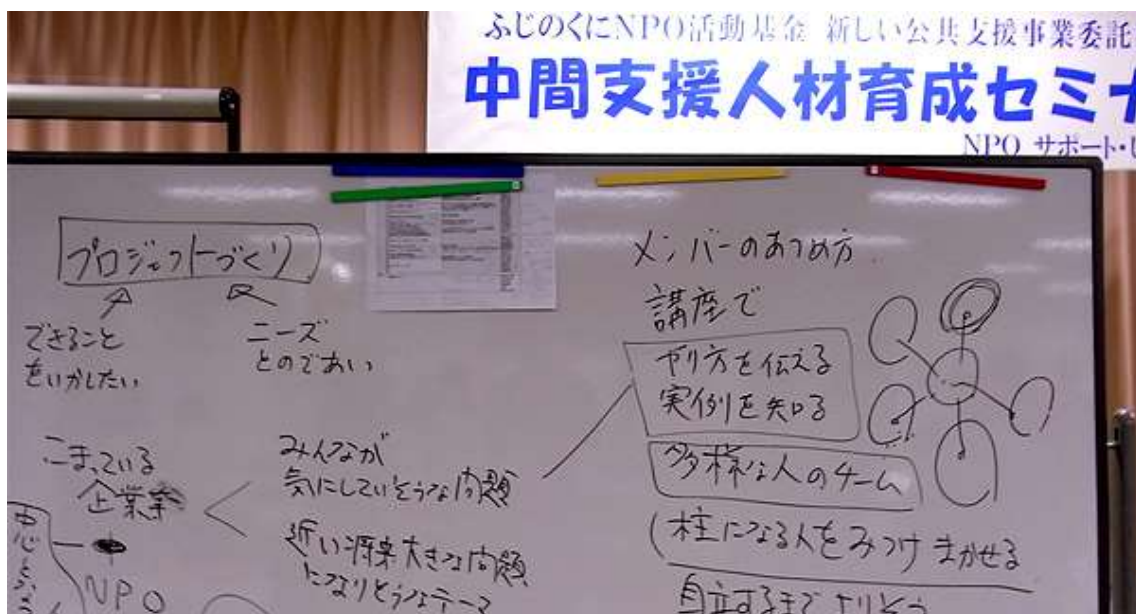 ふじのくにNPO活動基金 新しい公共支援事業委託
中間支援人材育成セミナ
NPO サポート・し
プロジェクトづくり
できること
をいかしたい
ニーズ
とのであい
こまっている
企業
NPO
みんなが
気にしていそうな問題
近い将来大きな問題
になりそうなテーマ
メンバーのあつめ方
講座で
やり方を伝える
実例を知る
多様な人のチーム
柱になる人をみつけまかせる
自立するまでよりそう